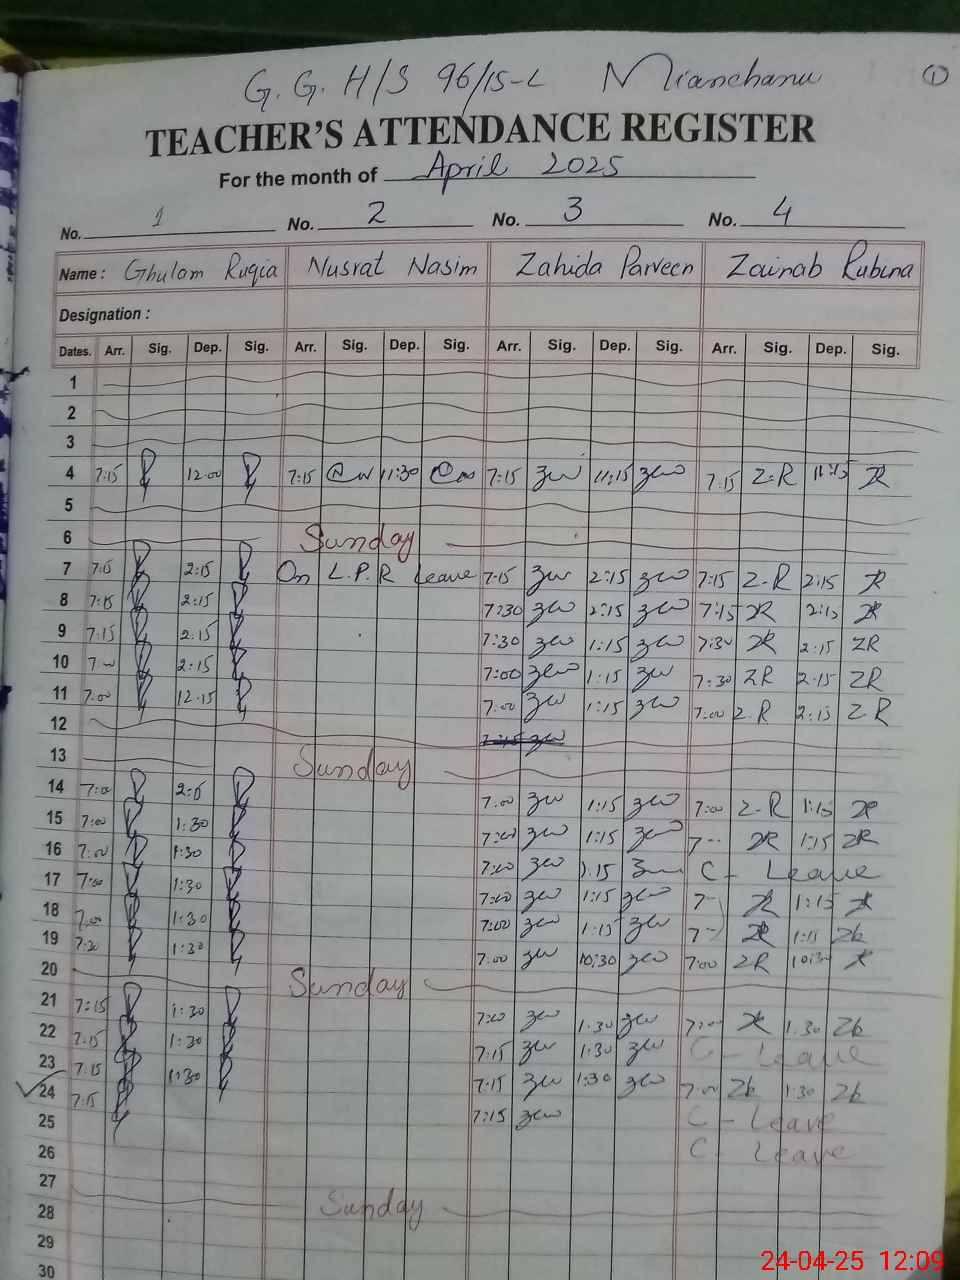 G.G.H/S 96/15-L Mianchanu
1
TEACHER'S ATTENDANCE REGISTER
For the month of April 2025
No. 1 No. 2 No. 3 No. 4
Name : Ghulam Ruqia Nusrat Nasim Zahida Parveen Zainab Rubina
Designation :
Dates. Arr. Sig. Dep. Sig. Arr. Sig. Dep. Sig. Arr. Sig. Dep. Sig. Arr. Sig. Dep. Sig.
1
2
3
4 7:15 12:00 7:15 11:30 7:15 11:15 7:15 Z-R 11:15
5
6 Sunday
7 7:15 2:15 On L.P.R leave 7:15 2:15 7:15 Z-R 2:15
8 7:15 2:15 7:30 2:15 7:15 ZR 2:15
9 7:15 2:15 7:30 1:15 7:30 2:15 ZR
10 7:00 2:15 7:00 1:15 7:30 ZR 2:15 ZR
11 7:00 12:15 7:00 1:15 7:00 Z.R 2:15 Z-R
12
13 Sunday
14 7:00 7:00 1:15 7:00 Z-R 1:15
15 7:00 1:30 7:00 1:15 7 1:15 ZR
16 7:00 1:30 7:00 1:15 C - Leave
17 7:00 1:30 7:00 1:15 7 1:15
18 7:00 1:30 7:00 1:15 7 1:15
19 1:30 7:00 10:30 7:00 ZR 10:30
20 Sunday
21 7:15 1:30 7:00 1:30 7:00 1.30
22 7:15 1:30 7:15 1:30 C - Leave
23 7:15 1:30 7:15 1:30 7:00 1:30
24 7:15 7:15 C - Leave
25 C - Leave
26
27
28 Sunday
29
30
24-04-25 12:09